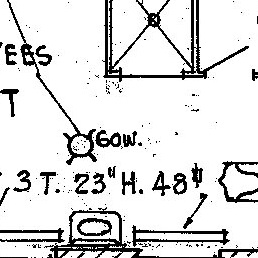 EES
T
60W.
,3 T. 23"H. 48"